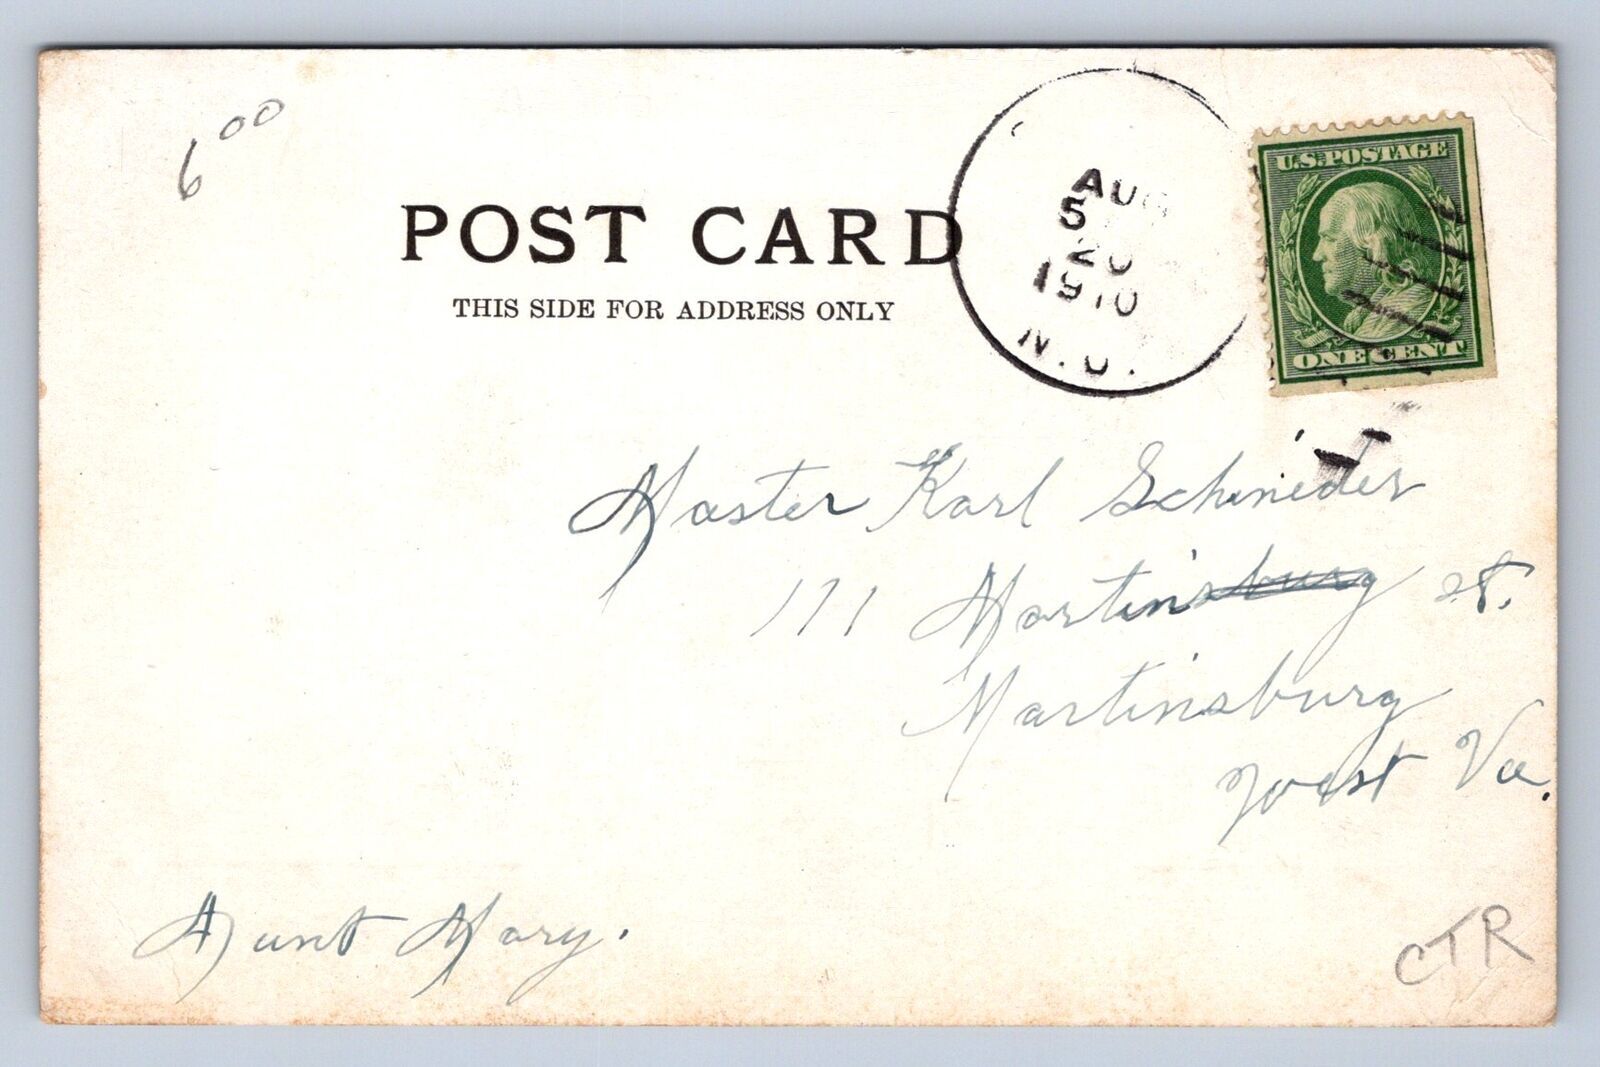 6 00
POST CARD
THIS SIDE FOR ADDRESS ONLY
AUG
5
20
1910
N.J.
U.S. POSTAGE
ONE CENT
Master Karl Schnieder
171 Martinsburg St.
Martinsburg
West Va.
Aunt Mary.
CTR